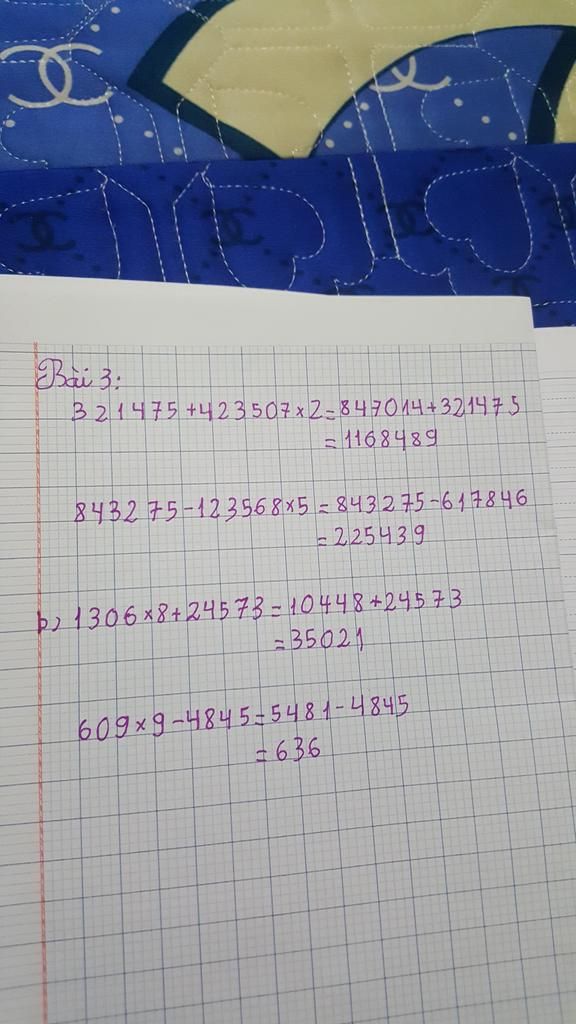 Bài 3:
321475+423507×2=847014+321475
=1168489
843275-123568×5=843275-617846
=225439
b, 1306×8+24573=10448+24573
=35021
609×9-4845=5481-4845
=636